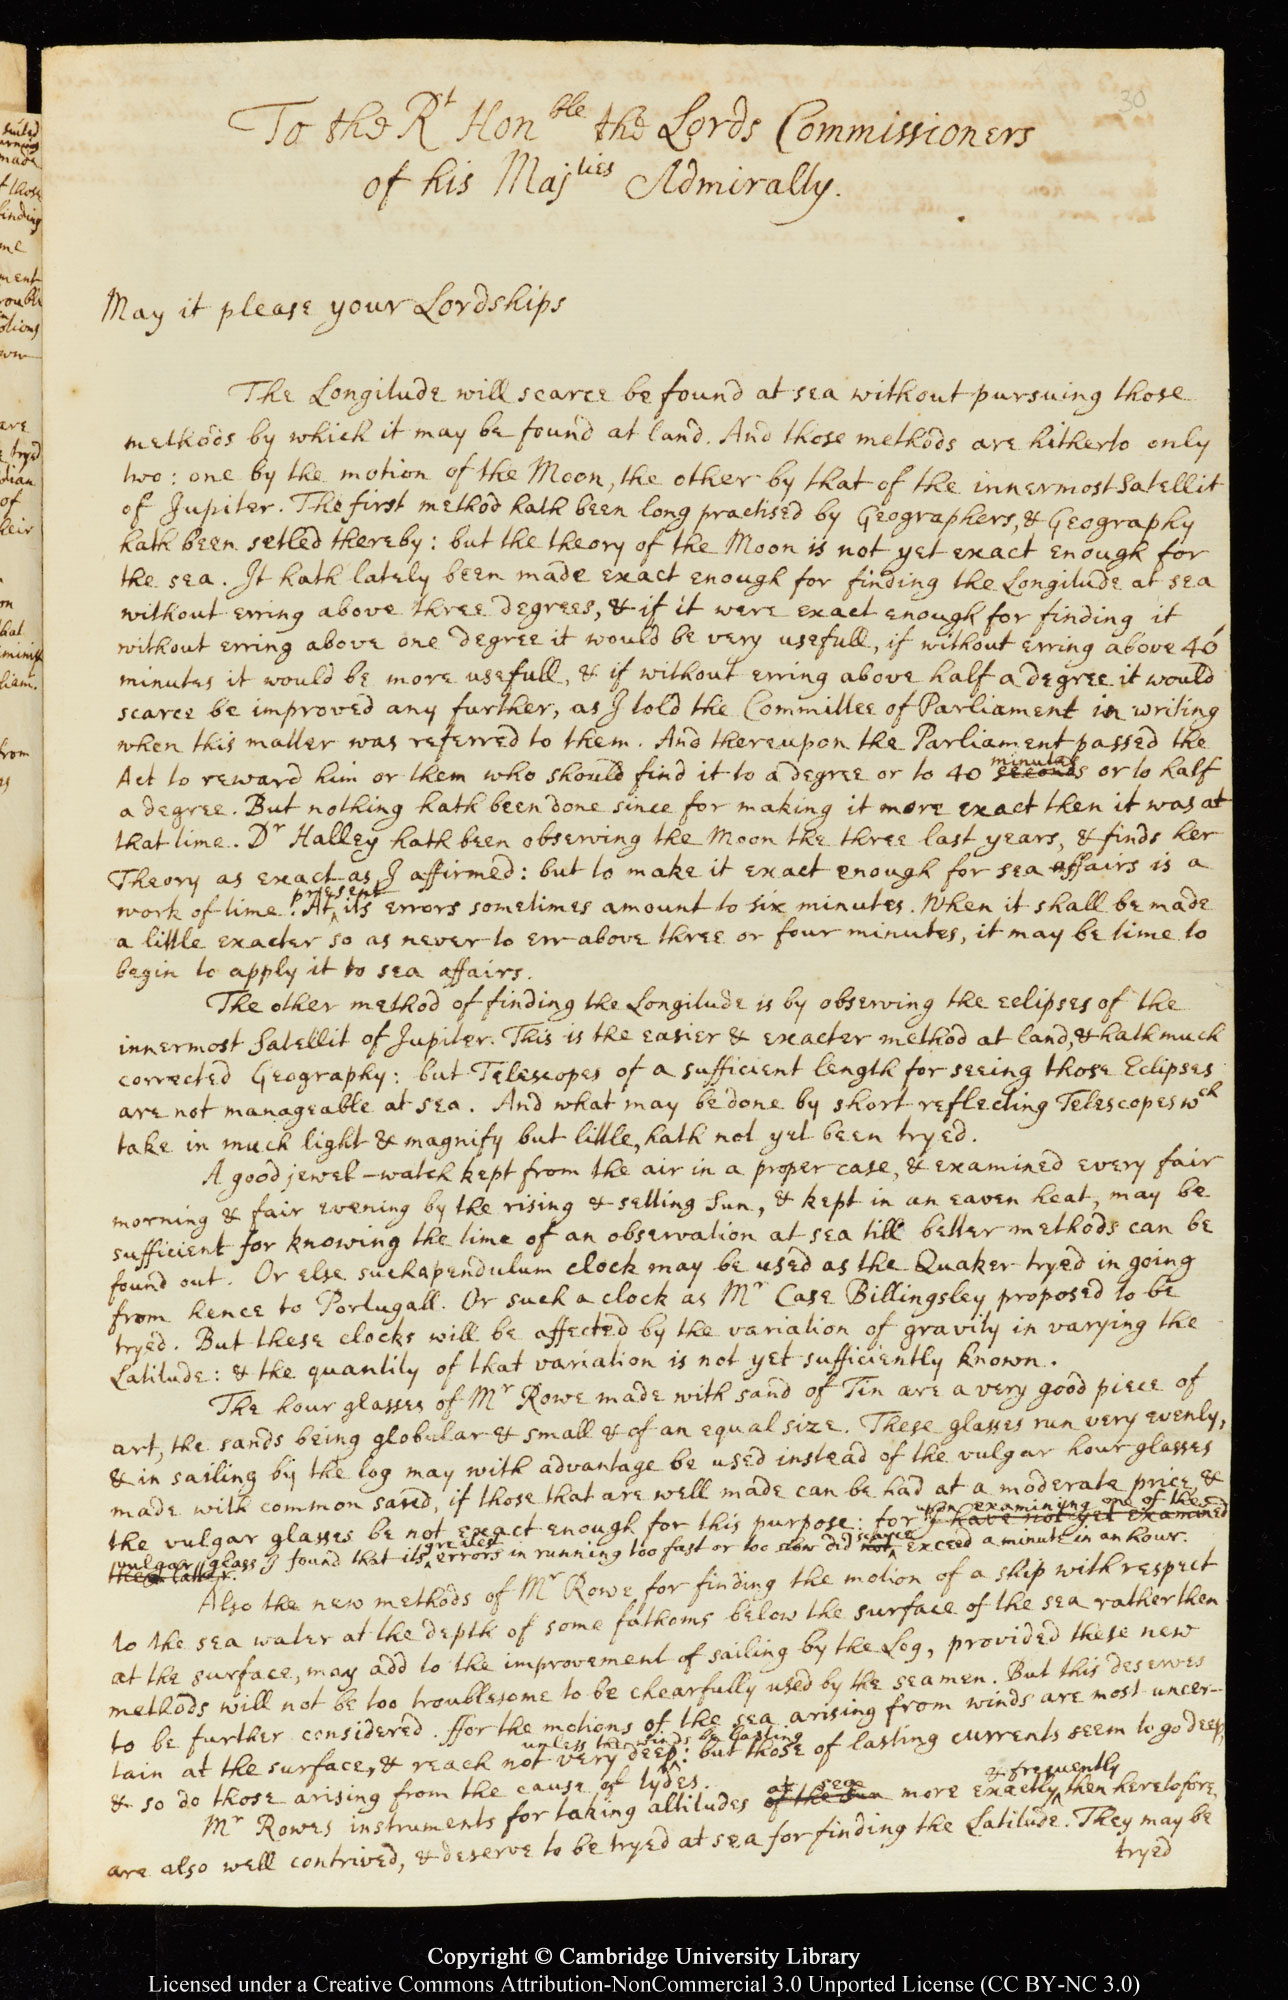 30
To the Rt Honble the Lords Commissioners
of his Majties Admiralty.
May it please your Lordships
The Longitude will scarce be found at sea without pursuing those
methods by which it may be found at land. And those methods are hitherto only
two: one by the motion of the Moon, the other by that of the innermost Satellit
of Jupiter. The first method hath been long practised by Geographers, & Geography
hath been setled thereby: but the theory of the Moon is not yet exact enough for
the sea. It hath lately been made exact enough for finding the Longitude at sea
without erring above three degrees, & if it were exact enough for finding it
without erring above one degree it would be very usefull, if without erring above 40
minutes it would be more usefull, & if without erring above half a degree it would
scarce be improved any further, as I told the Committee of Parliament in writing
when this matter was referred to them. And thereupon the Parliament passed the
minutes
Act to reward him or them who should find it to a degree or to 40 seconds or to half
a degree. But nothing hath been done since for making it more exact then it was at
that time. Dr Halley hath been observing the Moon the three last years, & finds her
Theory as exact as I affirmed: but to make it exact enough for sea affairs is a
present
work of time. At its errors sometimes amount to six minutes. When it shall be made
a little exacter so as never to err above three or four minutes, it may be time to
begin to apply it to sea affairs.
The other method of finding the Longitude is by observing the eclipses of the
innermost Satellit of Jupiter. This is the easier & exacter method at land, & hath much
corrected Geography: but Telescopes of a sufficient length for seeing those Eclipses
are not manageable at sea. And what may be done by short reflecting Telescopes wch
take in much light & magnify but little, hath not yet been tryed.
A good jewel-watch kept from the air in a proper case, & examined every fair
morning & fair evening by the rising & setting Sun, & kept in an eaven heat, may be
sufficient for knowing the time of an observation at sea till better methods can be
found out. Or else such a pendulum clock may be used as the Quaker tryed in going
from hence to Portugall. Or such a clock as Mr Case Billingsley proposed to be
tryed. But these clocks will be affected by the variation of gravity in varying the
Latitude: & the quantity of that variation is not yet sufficiently known.
The hour glasses of Mr Rowe made with sand of Tin are a very good piece of
art, the sands being globular & small & of an equal size. These glasses run very evenly,
& in sailing by the log may with advantage be used instead of the vulgar hour glasses
made with common sand, if those that are well made can be had at a moderate price, &
upon examining one of the
the vulgar glasses be not exact enough for this purpose: for I have not yet examined
vulgar glass I found that its greatest errors in running too fast or too slow did not scarce exceed a minute in an hour.
the latter.
Also the new methods of Mr Rowe for finding the motion of a ship with respect
to the sea water at the depth of some fathoms below the surface of the sea rather then
at the surface, may add to the improvement of sailing by the Log, provided these new
methods will not be too troublesome to be chearfully used by the seamen. But this deserves
to be further considered. ffor the motions of the sea arising from winds are most uncer-
unless the winds be lasting
tain at the surface, & reach not very deep: but those of lasting currents seem to go deep,
& so do those arising from the cause of tydes.
at sea & frequently
Mr Rowes instruments for taking altitudes of the Sun more exactly then heretofore,
are also well contrived, & deserve to be tryed at sea for finding the Latitude. They may be
tryed
Copyright © Cambridge University Library
Licensed under a Creative Commons Attribution-NonCommercial 3.0 Unported License (CC BY-NC 3.0)